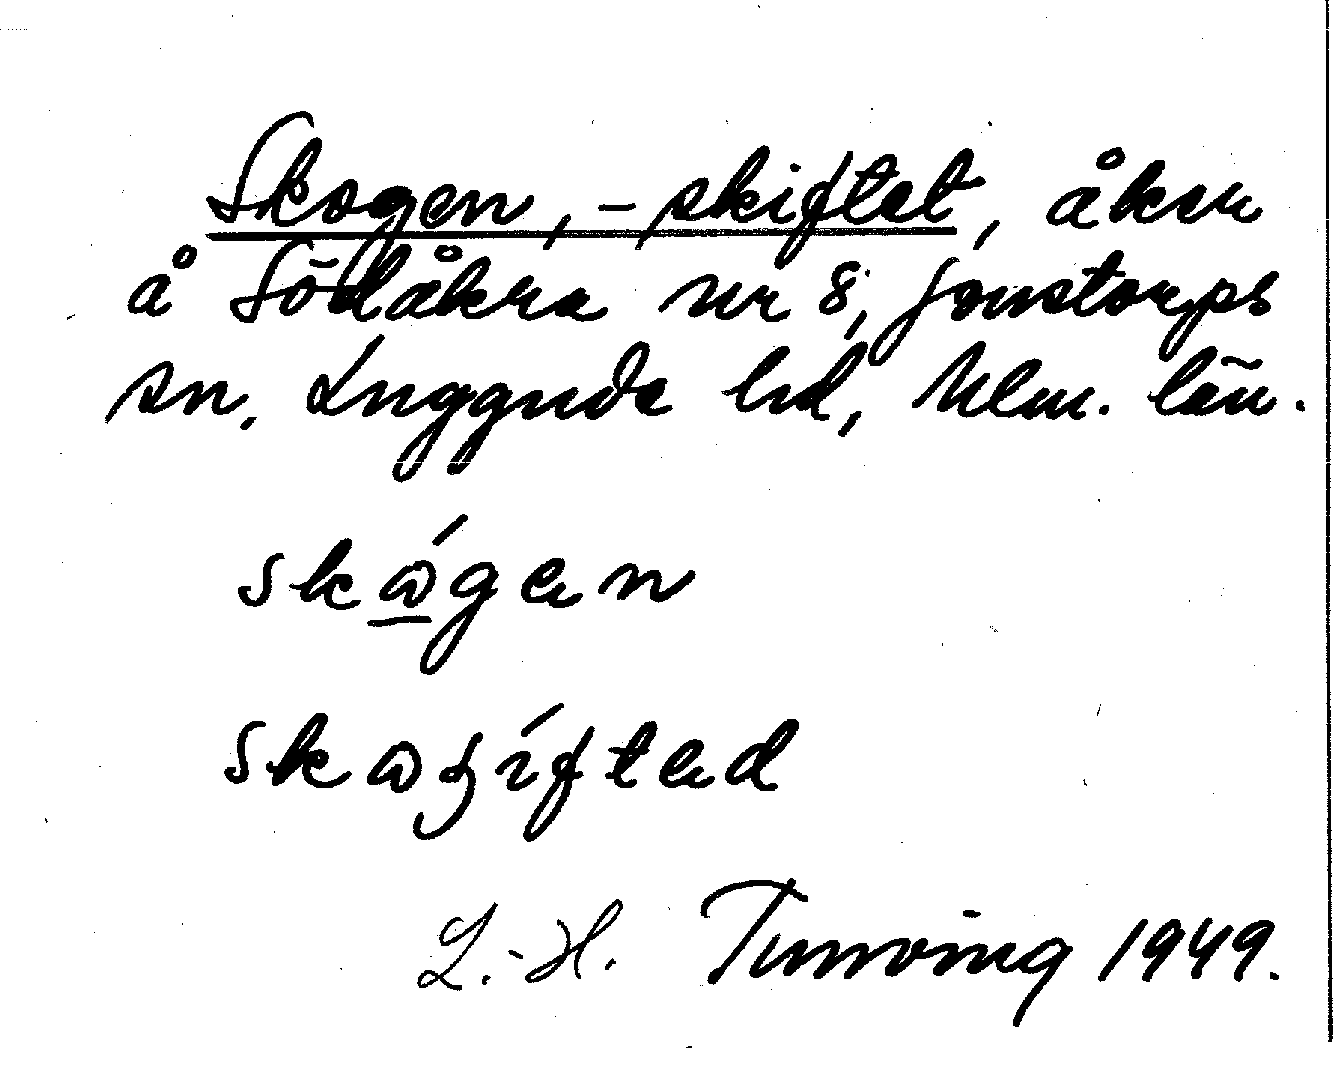 Skogen, -skiftet, åker
å Södåkra nr 8, Jonstorps
sn. Luggude hd, Mlm. län.
skǻgen
skaʒífted
L.-H. Tunving 1949.